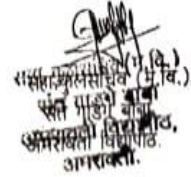 सहा. कुलसचिव (म.वि.)
संत गाडगे बाबा
अमरावती विद्यापीठ,
अमरावती.